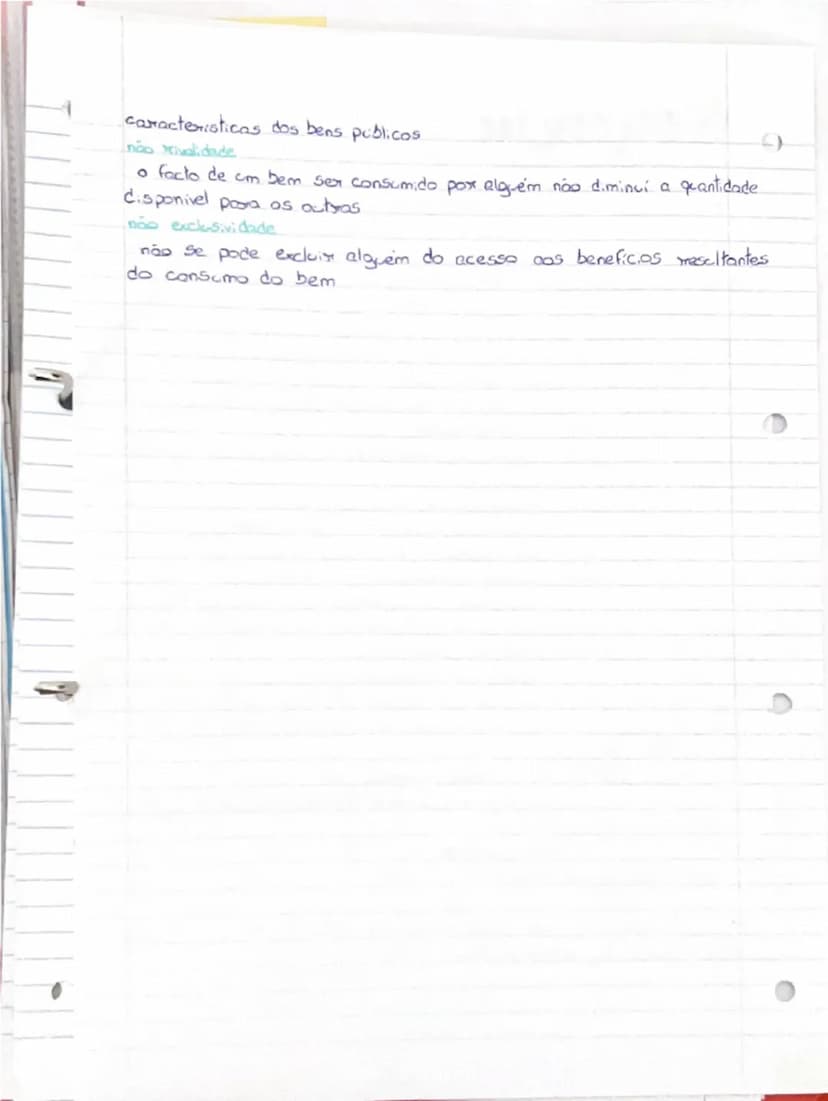 características dos bens públicos
não rivalidade
o facto de um bem ser consumido por alguém não diminui a quantidade
disponível para os outros
não exclusividade
não se pode excluir alguém do acesso aos benefícios resultantes
do consumo do bem